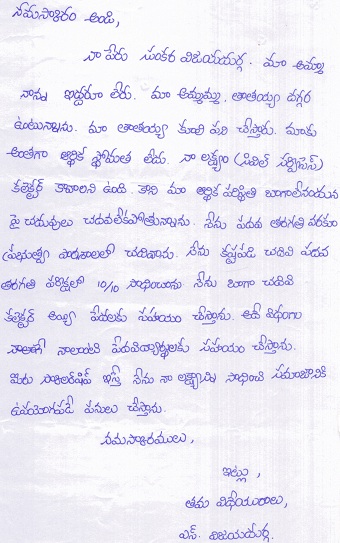 నమస్కారం అండి,
నా పేరు సుంకర విజయదుర్గ. మా అమ్మ
నాన్న ఇద్దరూ లేరు. మా అమ్మమ్మ, తాతయ్య దగ్గర
ఉంటున్నాను. మా తాతయ్య కూలి పని చేస్తారు. మాకు
అంతగా ఆర్థిక స్తోమత లేదు. నా లక్ష్యం (సివిల్ సర్వీసెస్)
కలెక్టర్ కావాలని ఉంది. కాని మా ఆర్థిక పరిస్థితి బాగాలేనందున
పై చదువులు చదవలేకపోతున్నాను. నేను పదవ తరగతి వరకు
ప్రభుత్వ పాఠశాలలో చదివాను. నేను కష్టపడి చదివి పదవ
తరగతి పరీక్షల్లో 10/10 సాధించాను నేను బాగా చదివి
కలెక్టర్ అయ్యి పేదలకు సహాయం చేస్తాను. అదే విధంగా
నాలాంటి పేదవిద్యార్థులకు సహాయం చేస్తాను.
మీరు స్కాలర్‌షిప్ ఇస్తే నేను నా లక్ష్యాన్ని సాధించి సమాజానికి
ఉపయోగపడే పనులు చేస్తాను.
నమస్కారములు,
ఇట్లు,
తమ విధేయురాలు,
ఎస్. విజయదుర్గ.